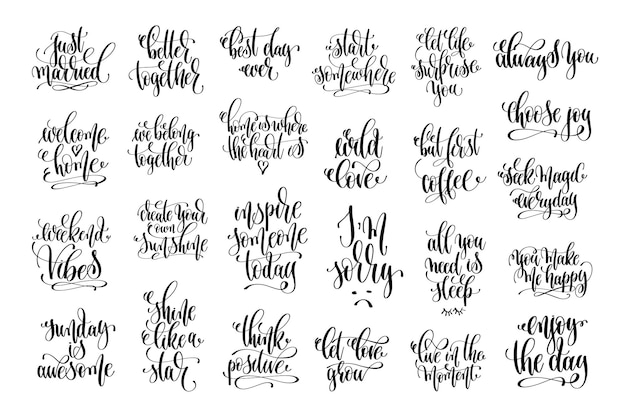 just
married
better
together
best day
ever
start
somewhere
let life
surprise
you
always you
welcome
home
we belong
together
home is where
the heart is
wild
love
but first
coffee
choose joy
seek magic
everyday
weekend
vibes
create your
own
sunshine
inspire
someone
today
I'm
sorry
all you
need is
sleep
you make
me happy
sunday
is
awesome
shine
like a
star
think
positive
let love
grow
live in the
moment
enjoy
the day